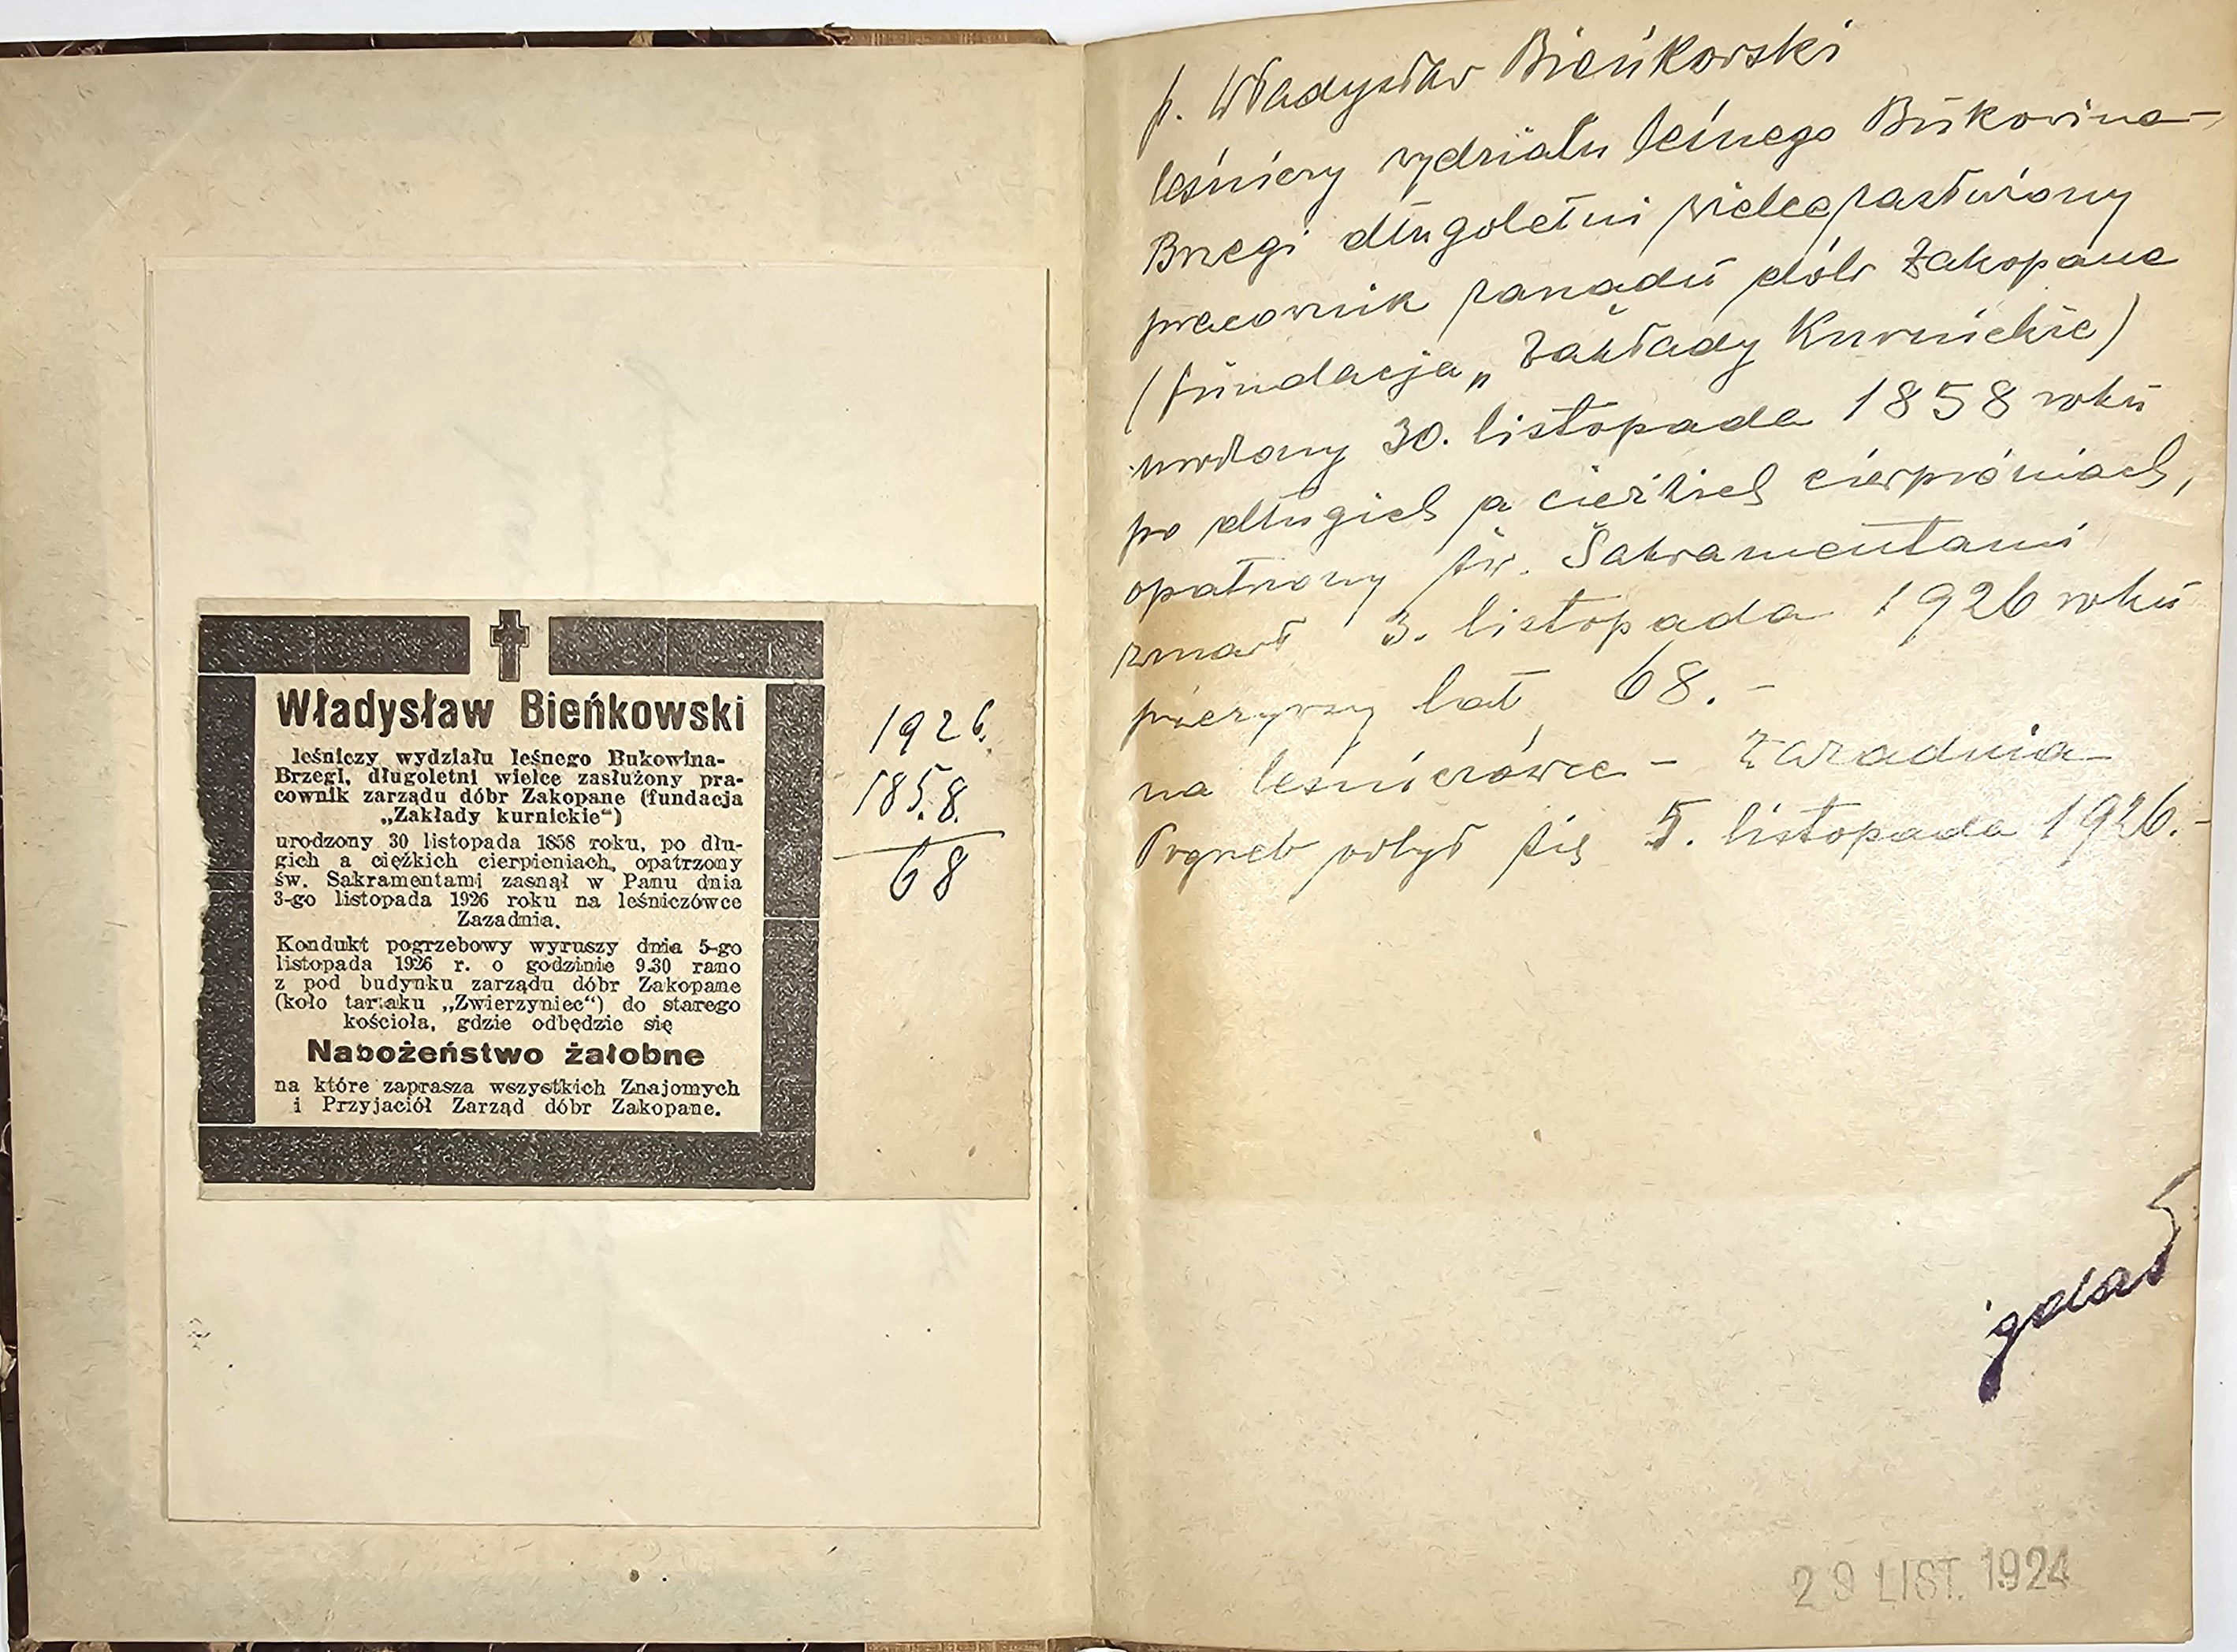 Władysław Bieńkowski
leśniczy wydziału leśnego Bukowina-
Brzegi, długoletni wielce zasłużony pra-
cownik zarządu dóbr Zakopane (fundacja
„Zakłady kurnickie“)
urodzony 30 listopada 1858 roku, po dłu-
gich a ciężkich cierpieniach, opatrzony
św. Sakramentami zasnął w Panu dnia
3-go listopada 1926 roku na leśniczówce
Zazadnia.
Kondukt pogrzebowy wyruszy dnia 5-go
listopada 1926 r. o godzinie 9.30 rano
z pod budynku zarządu dóbr Zakopane
(koło tartaku „Zwierzyniec“) do starego
kościoła, gdzie odbędzie się
Nabożeństwo żałobne
na które zaprasza wszystkich Znajomych
i Przyjaciół Zarząd dóbr Zakopane.
1926.
1858.
68
p. Władysław Bieńkowski
leśniczy wydziału leśnego Bukowina-
Brzegi długoletni wielce zasłużony
pracownik zarządu dóbr Zakopane
(fundacja „Zakłady Kurnickie)
urodzony 30. listopada 1858 roku
po długich a ciężkich cierpieniach,
opatrzony św. Sakramentami
zmarł 3. listopada 1926 roku
przeżywszy lat 68.-
na leśniczówce - Zazadnia-
Pogrzeb odbył się 5. listopada 1926.-
29 LIST. 1924